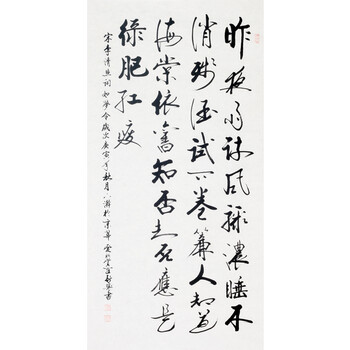 昨夜雨疎风骤濃睡不
消残酒试问卷簾人却道
海棠依舊知否知否應是
绿肥红瘦
宋李清照词如梦令歲次庚寅年秋月於京華書